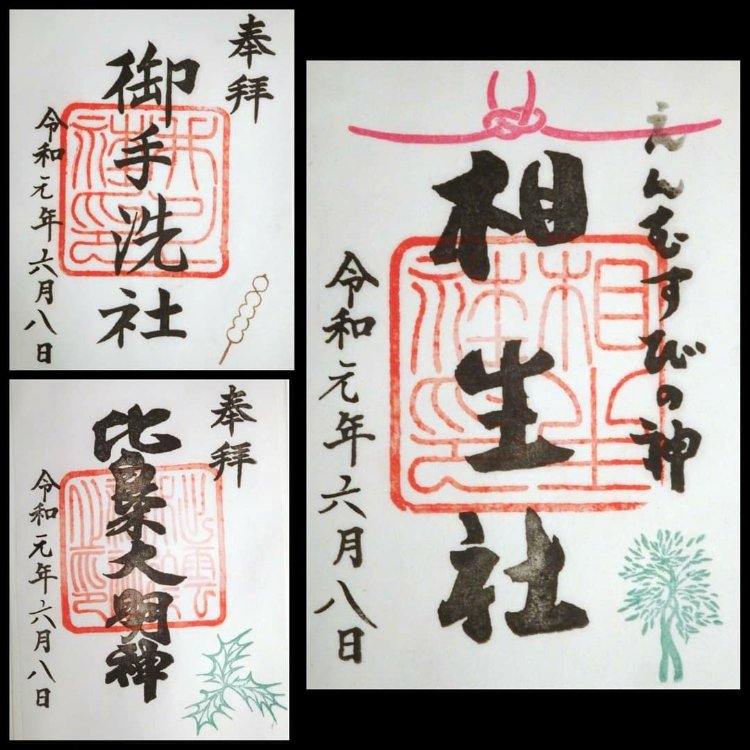 奉拝
御手洗社
令和元年六月八日
奉拝
比良木大明神
令和元年六月八日
えんむすびの神
相生社
令和元年六月八日